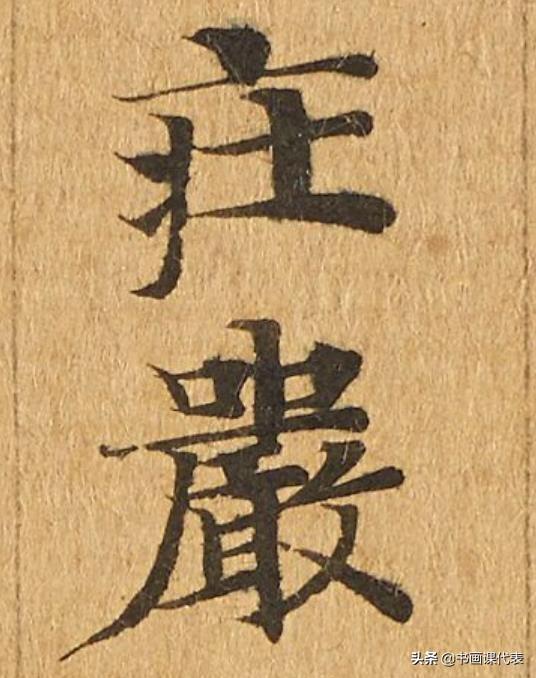 㽵嚴
头条 @书画课代表